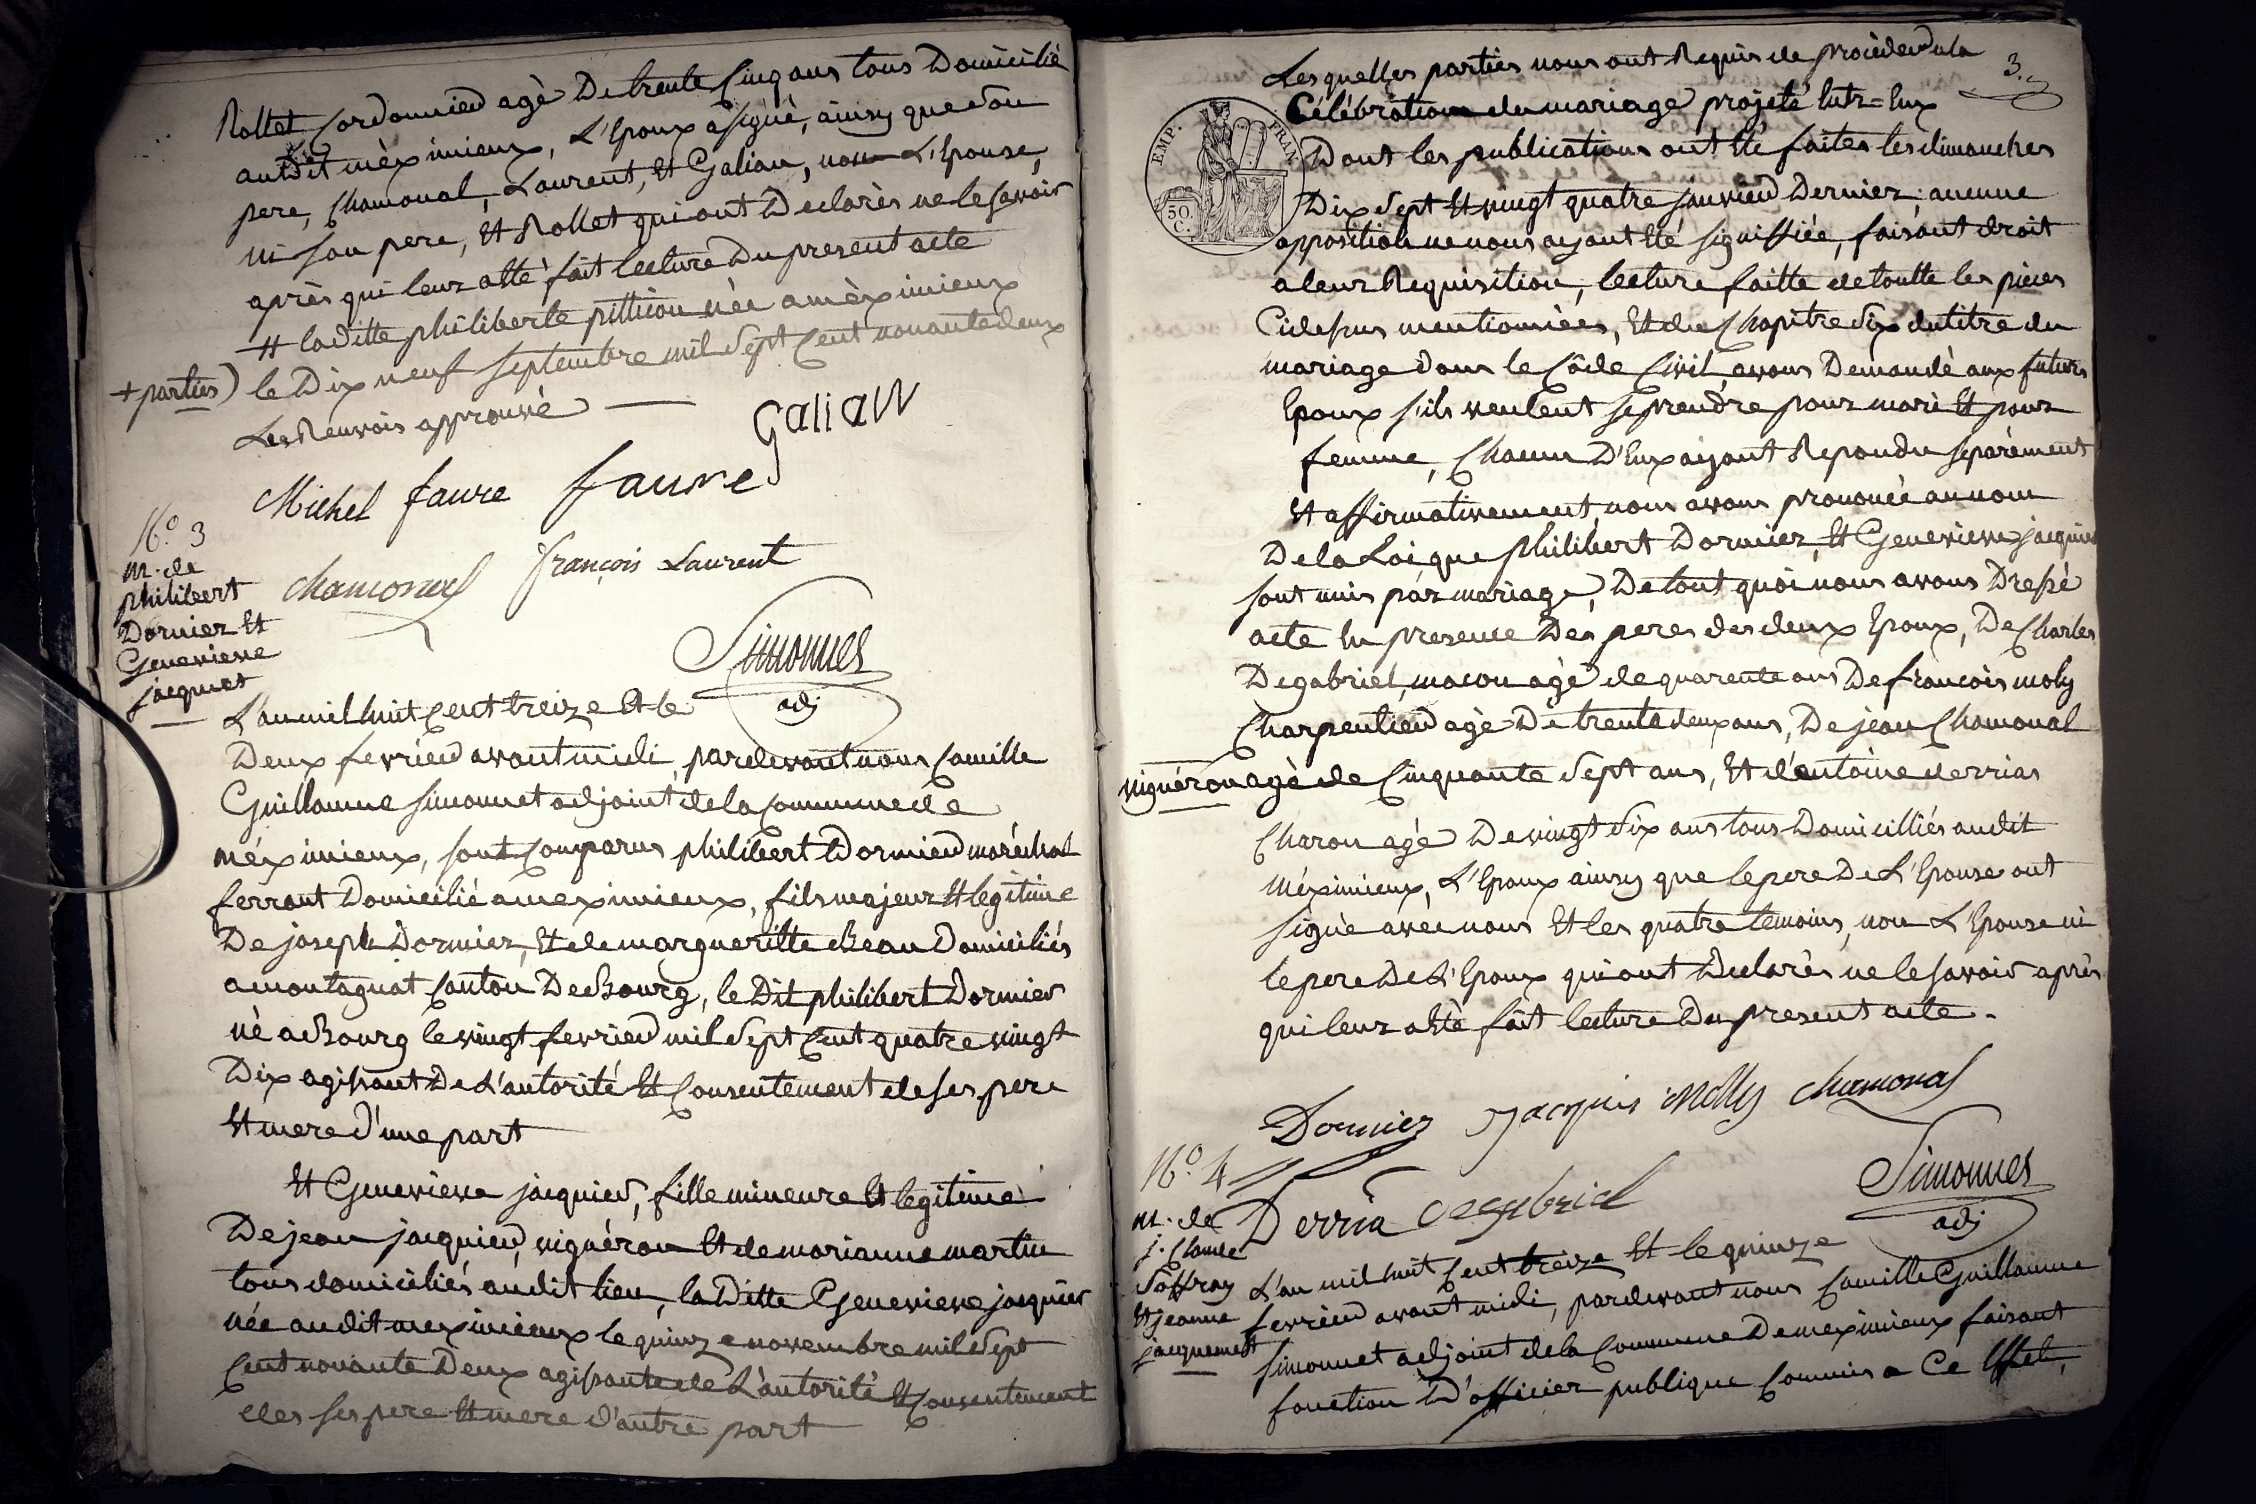 Rollet Cordonnier agè De trente Cinq ans tous Domicilié
audit mèximieux, L'Epoux a signè, ainsy que son
pere, Chamonal, Laurent, Et Galian, non L'Epouse,
ni son pere, Et Rollet qui ont Declarès ne le savoir
après qui leur a Eté fait lecture Du present acte
# laditte philiberte pittion née a mèximieux
+ parties) le Dix neuf septembre mil sept Cent nonante deux
Les Renvois approuvè
Galian
Michel faure faure
chamonal françois Laurent
Simonnet
adj
N.o 3
M. de
philibert
Dormier Et
Genevieve
jacquier
L'an mil huit Cent treize Et le
Deux fevrier avant midi, pardevant nous Camille
Guillaume Simonnet adjoint de la Commune de
méximieux, sont Comparus philibert Dormier maréchal
ferrant Domicilié a meximieux, fils majeur Et legitime
De joseph Dormier, Et de margueritte Beau Domiciliés
a montagnat Canton De Bourg, le Dit philibert Dormier
nè a Bourg le vingt fevrier mil sept Cent quatre vingt
Dix agissant De L'autorité Et Consentement de ses pere
Et mere d'une part
Et Genevieve jacquier, fille mineure Et legitime
De jean jacquier, vignéron Et de marianne martin
tous domiciliés audit lieu, la Ditte Genevieve jacquier
née audit meximieux le quinze novembre mil sept
Cent nonante Deux agissante de L'autorité Et Consentement
des ses pere Et mere d'autre part
3.
Les quelles parties nous ont Requis de procèder a la
Célébration du mariage projeté Entr=Eux
EMP. FRAN
50.
C.
Dont les publications ont Eté faites les dimanches
Dix sept Et vingt quatre janvier Dernier; aucune
opposition ne nous ayant Eté signiffiée, faisant droit
a leur Requisition, lecture faitte de toutte les pieces
Cidessus mentionnèes, Et du Chapitre six du titre du
mariage dans le Côde Civil, avons Demandè aux futurs
Epoux s'ils veulent se prendre pour mari Et pour
femme, Chacun D'Eux ayant Repondu séparèment
Et affirmativement, nous avons prononcè au nom
De la Loi que philibert Dormier, Et Genevieve jacquier
sont unis par mariage, De tout quoi nous avons Dressé
acte En presence Des peres des deux Epoux, De Charles
Degabriel, macon agè de quarente ans De francois moly
Charpentier agè De trente deux ans, De jean Chamonal
vignéron agè de Cinquante sept ans, Et d'antoine derrias
Charon agè De vingt six ans tous Domicilliés audit
méximieux, L'Epoux ainsy que le pere De L'Epouse ont
signè avec nous Et les quatre temoins, non L'Epouse ni
le pere De L'Epoux qui ont Declarès ne le savoir après
qui leur a Eté fait lecture Du present acte.
Dormier Jacquis Molly chamonal
Derria degabriel
Simonnet
adj
N.o 4
M. de
j. Claude
Soffray
Et jeanne
jacquemet
L'an mil huit Cent treize Et le quinze
fevrier avant midi, pardevant nous Camille Guillaume
Simonnet adjoint de la Commune De meximieux faisant
fonction D'officier publique Commis a Ce Effet,